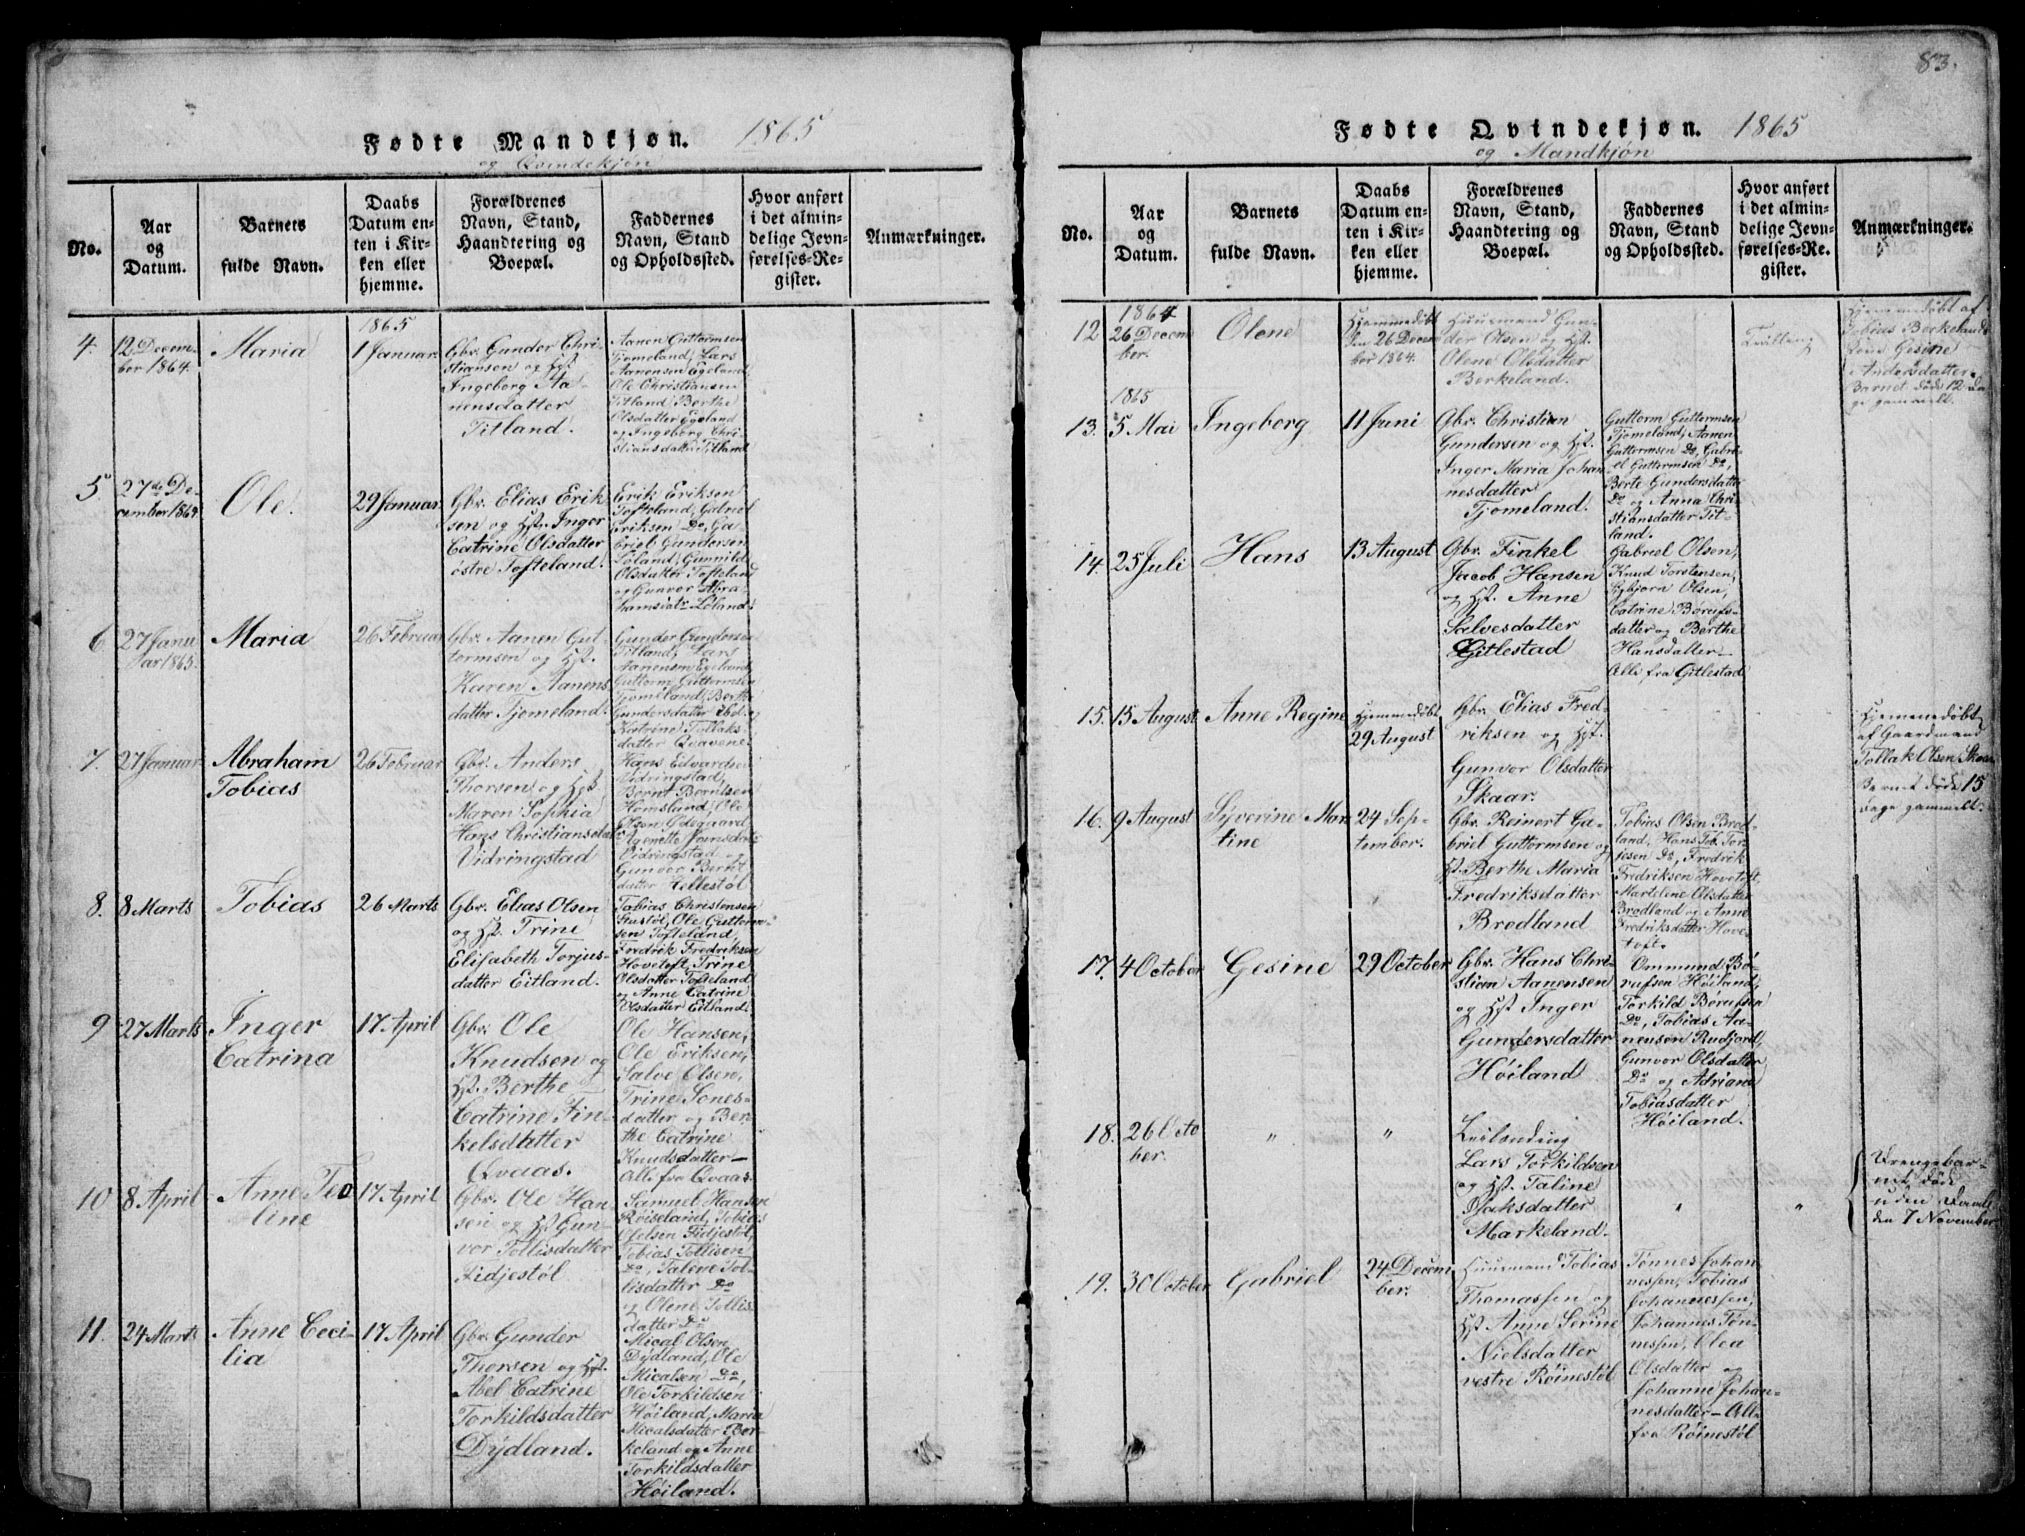 Fødte Mandkjøn. 1865
og Qvindekjøn
No.
Aar
og
Datum.
Barnets
fulde Navn.
Daabs
Datum en-
ten i Kir-
ken eller
hjemme.
Forældrenes
Navn, Stand,
Haandtering og
Boepæl.
Faddernes
Navn, Stand
og Opholdssted.
Hvor anført
i det almin-
delige Jevn-
førelses-Re-
gister.
Anmærkninger.
4.
12 Decem-
ber 1864.
Maria
1865
1 Januar.
Gbr. Gunder Chri-
stiansen og Hst.
Ingeborg Aa-
nensdatter
Titland.
Aanen Guttormsen
Tjomeland, Lars
Aanensen Egeland
Ole Christiansen
Titland, Berthe
Olsdatter Egeland
og Ingeborg Chri-
stiansdatter Titland
5.
27de De-
cember 1864
Ole.
29 Januar.
Gbr. Elias Erik
sen og Hst. Inger
Catrine Olsdatter
østre Tofteland.
Erik Eriksen
Tofteland, Gabriel
Eriksen Do, Ga-
briel Gundersen
Løland, Gunnild
Olsdatter Tofteland
og Gunvor Abra-
hamsdatr Løland.
6
27 Janu
uar 1865.
Maria
26 Februar
Gbr. Aanen Gut
tormsen og Hst.
Karen Aanens
datter Tjomeland.
Gunder Gundersen
Titland, Lars
Aanensen Egeland,
Guttorm Guttormsen
Tjomeland, Berthe
Gundersdatter Ibd. og
Katrine Tollaks-
datter Qvavene
7.
27 Januar.
Abraham
Tobias
26 Februar
Gbr. Anders
Thorsen og Hst
Maren Sophia
Hans Christiansdatr
Vidringstad
Hans Edvardsen
Vidringstad,
Bernt Berntsen
Homsland, Ole
Olsen Ødegaard
Vidringstad og
Gunvor Bernt
datter
8.
8 Marts
Tobias
26 Marts
Gbr. Elias Olsen
og Hst. Trine
Elisabeth Torjus-
datter Eitland.
Tobias Christensen
Ole Guttorm-
sen Tofteland,
Fredrik Fredriksen
Hovetoft, Trine
Olsdatter Tofteland
og Anne Catrine
Olsdatter Eitland.
9
27 Marts
Inger
Catrina
17 April
Gbr. Ole
Knudsen og
Hst. Berthe
Catrine Fin-
kelsdatter
Qvaas.
Ole Hansen,
Ole Eriksen,
Salve Olsen,
Trine Sones-
datter og Ber-
the Catrine
Knudsdatter—
Alle fra Qvaas.
10
8 April
Anne Teo
line
17 April
Gbr. Ole Han-
sen og Hst Gun-
vor Tollisdatter
Fidjestøl
Samuel Hansen
Røiseland, Tobias
Olelsen Fidjestøl,
Tobias Tollisen
Do, Talene Tol-
lisdatter Do
og Olene Tollis-
datter Do
11.
24 Marts
Anne Ceci-
lia
17 April
Gbr. Gunder
Thorsen og Hst.
Abel Catrine
Torkildsdatter
Dydland.
Mical Olsen
Dydland, Ole
Micalsen Do,
Ole Torkildsen
Høiland, Maria
Micalsdatter Ber-
keland og Anne
Torkildsdatter
Høiland.
83.
Fødte Qvindekjøn. 1865
og Mandkjøn
No.
Aar
og
Datum.
Barnets
fulde Navn.
Daabs
Datum en-
ten i Kir-
ken eller
hjemme.
Forældrenes
Navn, Stand,
Haandtering og
Boepæl.
Faddernes
Navn, Stand
og Opholdssted.
Hvor anført
i det almin-
delige Jevn-
førelses-Re-
gister.
Anmærkninger.
12
1864
26 Decem
ber.
Olene
Hjemmedøbt
den 26 Decem
ber 1864.
Huusmand Gun-
der Olsen og Hst.
Olene Olsdatter
Berkeland.
Tvilling
Hjemmedøbt af
Tobias Berkelands
Kone Gesine
Andersdatter.
Barnet døde 12 Da
ge gammelt.
1865
13.
5 Mai
Ingeborg
11 Juni
Gbr. Christian
Gundersen og Hst.
Inger Maria Johan
nesdatter
Tjomeland.
Guttorm Guttormsen
Tjomeland, Aanen
Guttormsen Do, Gabri-
el Guttormsen Do,
Berte Gundersdatter
Do og Anna Chri-
stiansdatter Tit-
land.
14.
25 Juli
Hans
13 August
Gbr. Finkel
Jacob Hansen
og Hst. Anne
Salvesdatter
Gitlestad
Gabriel Olsen,
Knud Torstensen,
Eybjørn Olsen,
Catrine Børufs-
datter og Berthe
Hansdatter—
Alle fra Gitlestad
15.
15 August.
Anne Regine
Hjemmedøbt
29 August
Gbr. Elias Fred
riksen og Hst.
Gunvor Olsdatter
Skaar.
Hjemmedøbt
af Gaardmand
Tollak Olsen Skaar.
Barnet døde 15
Dage gammelt.
16.
9 August
Syverine Mar
tine
24 Sep-
tember.
Gbr. Reinert Ga-
briel Guttormsen og
Hst. Berthe Maria
Fredriksdatter
Brødland
Tobias Olsen Brød-
land, Hans Tob. Tor-
jesen Do, Fredrik
Fredriksen Hovetoft,
Marteline Olsdatter
Brødland og Anne
Fredriksdatter Hove-
toft.
17.
4 October
Gesine
29 October
Gbr. Hans Chri-
stian Aanensen
og Hst Inger
Gundersdatter
Høiland
Ommund Bø-
rufsen Høiland,
Torkild Børufsen
Do, Tobias Aa-
nensen Rudjord,
Gunvor Olsdatter
Do og Adriane
Tobiasdatter
Høiland.
18.
26 Octo
ber.
"
"
Leilænding
Lars Torkildsen
og Hst. Taline
Isaksdatter
Markeland.
"
"
Drengebar-
net døde
uden Daab
den 7 November
19.
30 October
Gabriel
24 Decem
ber.
Huusmand Tobias
Thomassen og
Hst Anne Serine
Nielsdatter
vestre Røinestøl
Tønnes Johan
nessen, Tobias
Johannessen,
Johannes Tøn-
nessen, Olea
Olsdatter og
Johanne Johan-
nesdatter—Alle
fra Røinestøl